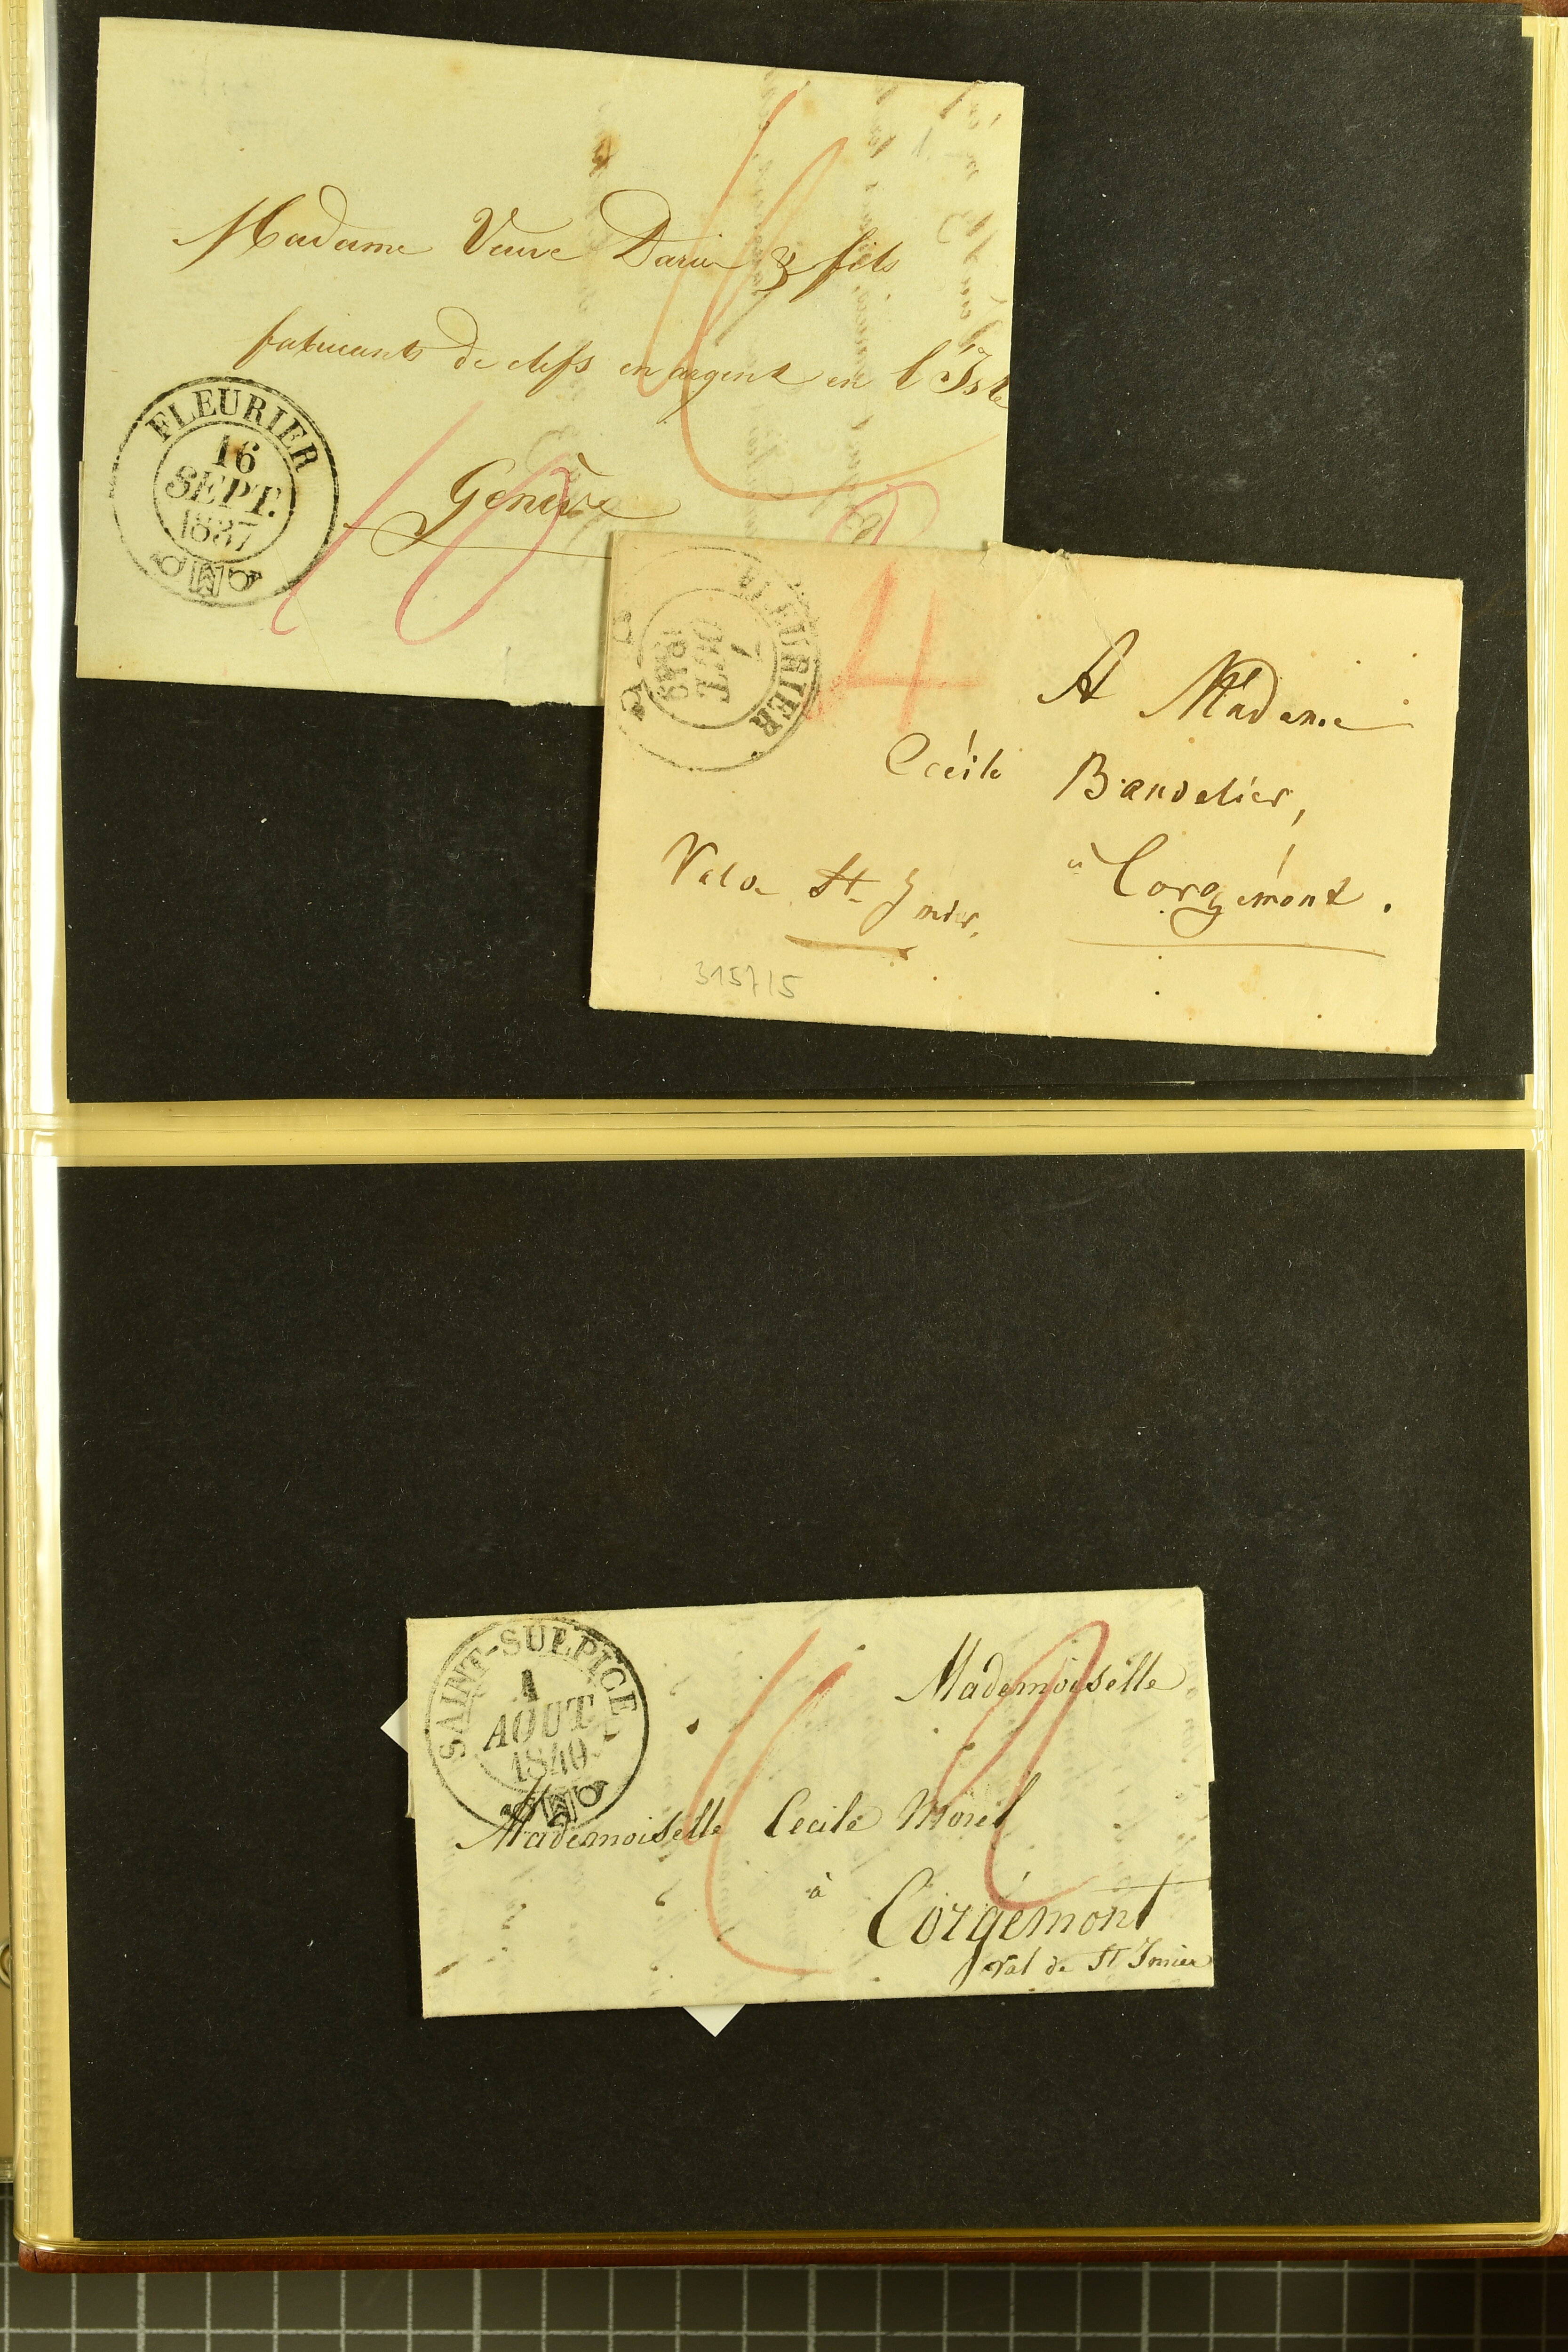 Madame Veuve Darier & fils
fabricants de clefs en argent en l'Isle
Genève
FLEURIER
16
SEPT.
1837
10
4
FLEURIER
7
OCT
1849
A Madame
Cécile Bandelier,
à Corgémont.
Val de St. Imier.
3157/5
SAINT-SULPICE
1
AOUT
1840
Mademoiselle
Mademoiselle Cecile Morel
à
Corgémont
Val de St Imier